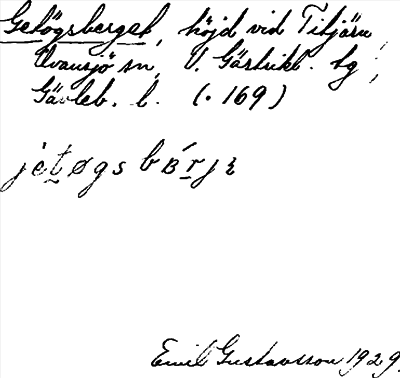 Getögsberget, höjd vid Titjärn
Ovansjö sn, V. Gästrikl. tg,
Gävleb. l. (. 169)
jetøgs bärjɛ
Emil Gustavsson 1929.